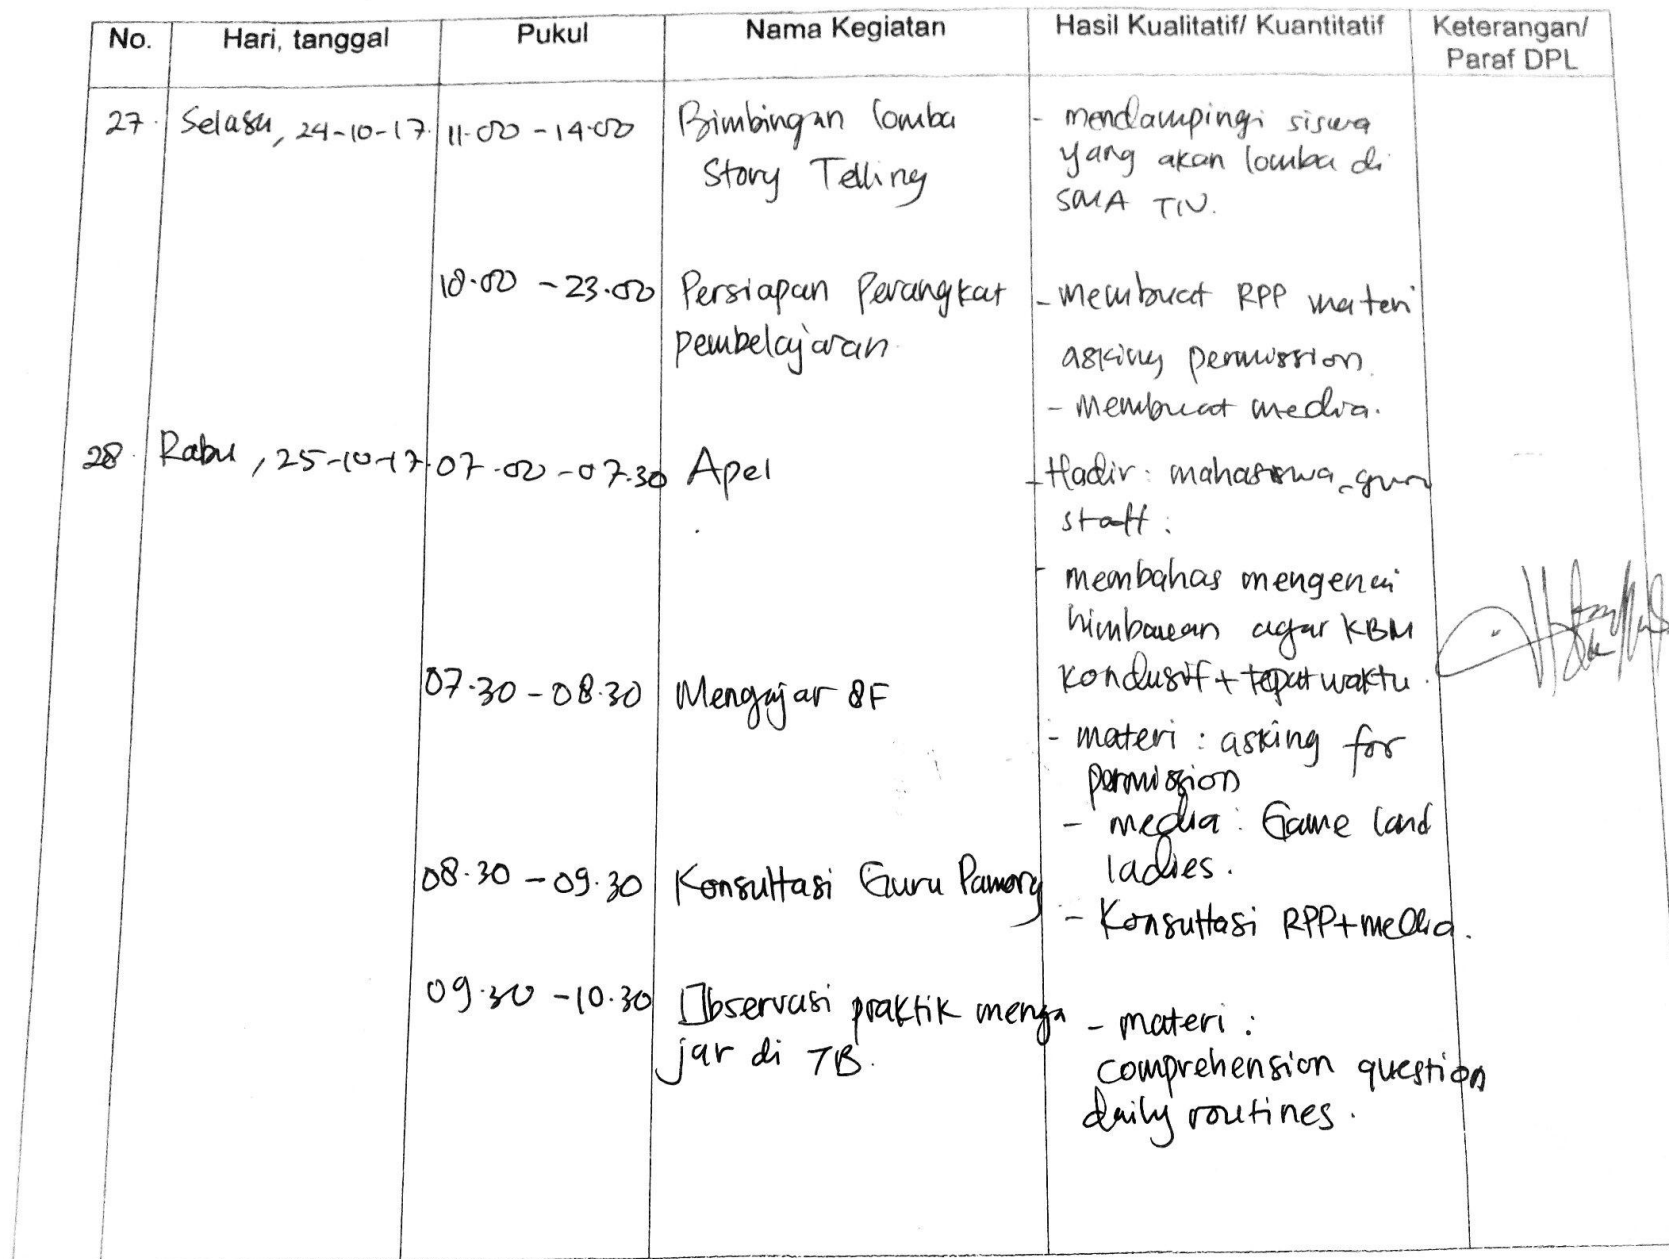 No. Hari, tanggal Pukul Nama Kegiatan Hasil Kualitatif/ Kuantitatif Keterangan/
Paraf DPL
27. Selasa, 24-10-17. 11.00 - 14.00 Bimbingan lomba - mendampingi siswa
Story Telling yang akan lomba di
SMA TN.
18.00 - 23.00 Persiapan Perangkat - membuat RPP materi
pembelajaran asking permission.
- Membuat media.
28. Rabu, 25-10-17. 07.00 - 07.30 Apel - Hadir : mahasiswa, guru
staff.
- membahas mengenai
himbauan agar KBM
kondusif + tepat waktu.
07.30 - 08.30 Mengajar 8F
- materi : asking for
permission
- media : Game land
ladies.
08.30 - 09.30 Konsultasi Guru Pamong
- Konsultasi RPP+media.
09.30 - 10.30 Observasi praktik menga - materi :
jar di 7B. comprehension question
daily routines.